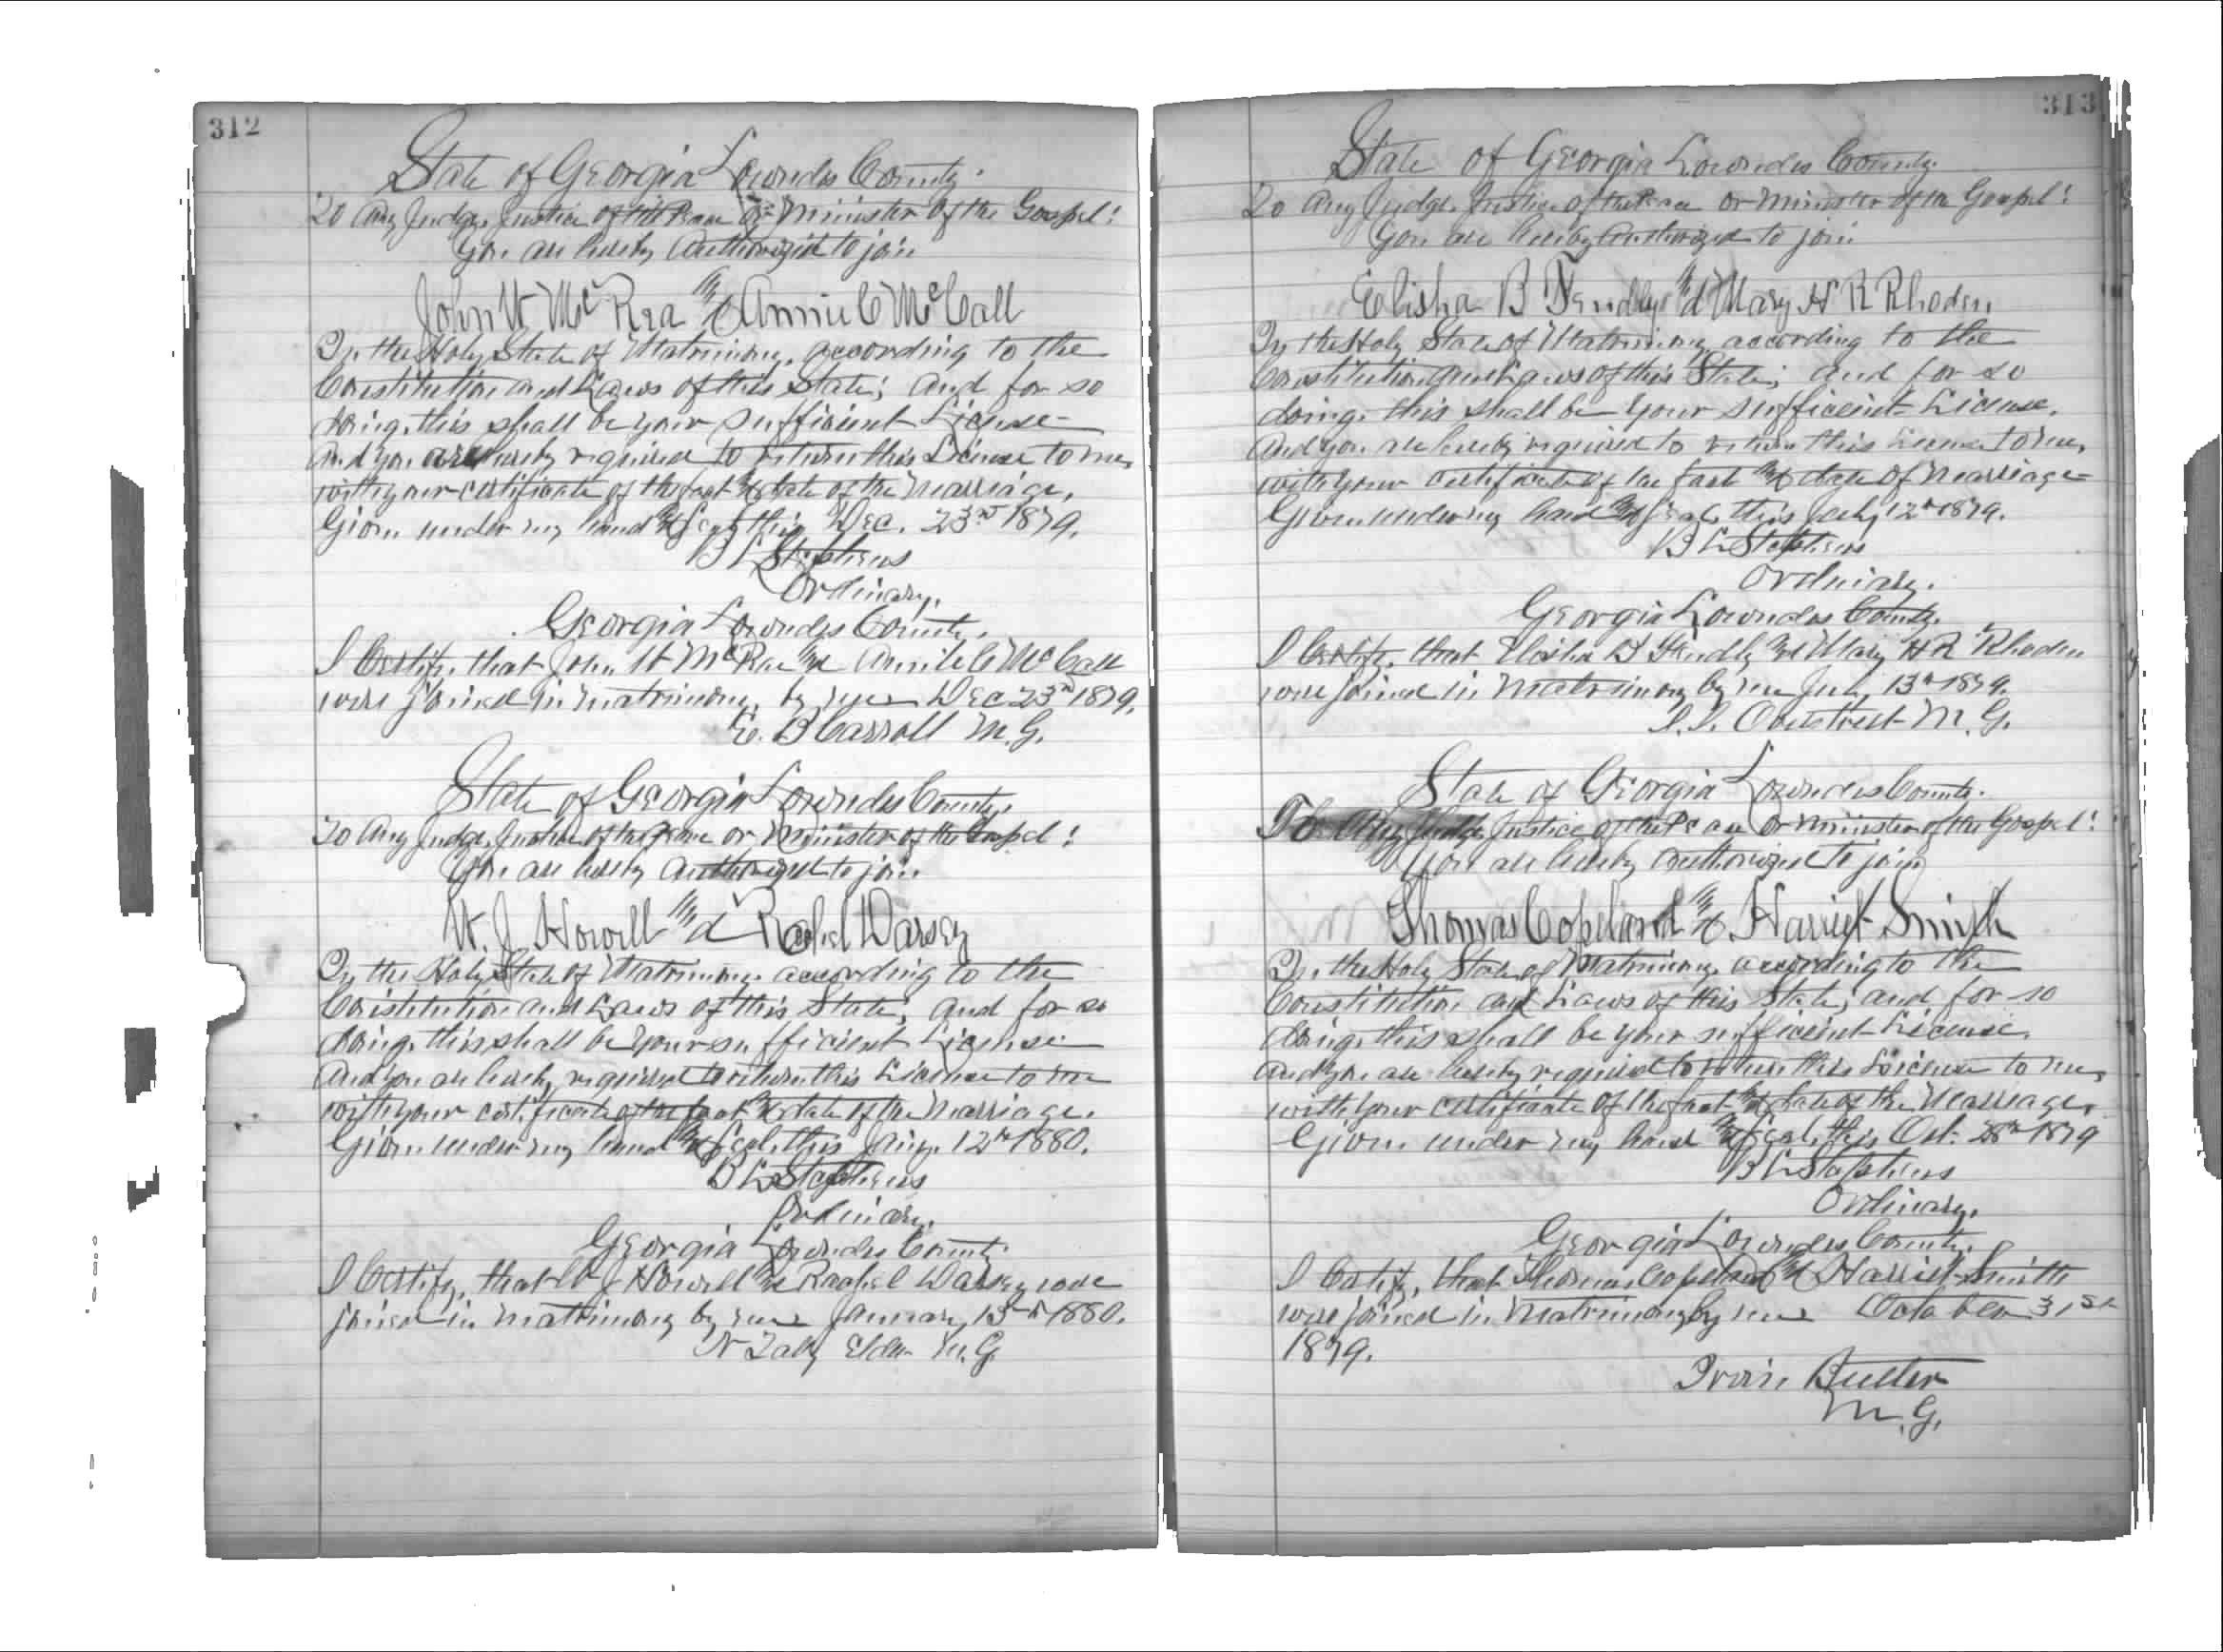 312
State of Georgia Lowndes County.
To Any Judge, Justice of the Peace or Minister of the Gospel:
You are hereby Authorized to join
John W McRea and Annie C McCall
In the Holy State of Matrimony, according to the
Constitution and Laws of this State; and for so
doing, this shall be your sufficient License
And you are hereby required to return this License to me,
with your certificate of the fact & date of the Marriage.
Given under my hand & seal, this Dec. 23rd 1879.
B L Stephens
Ordinary.
Georgia Lowndes County.
I Certify, that John W McRae and Annie C McCall
were joined in matrimony, by me Dec 23rd 1879.
E. B Carroll M.G.
State of Georgia Lowndes County,
To Any Judge, Justice of the Peace or Minister of the Gospel:
You are hereby authorized to join
W. J. Howell and Rachel Darsey
In the Holy State of Matrimony, according to the
Constitution and Laws of this State; and for so
doing, this shall be your sufficient License
And you are hereby required to return this License to me
with your certificate of the fact & date of the Marriage.
Given under my hand & seal, this Jany. 12th 1880.
B L Stephens
Ordinary.
Georgia Lowndes County.
I Certify, that W J Howell and Rachel Darsey were
joined in matrimony by me January 13th 1880.
Elder M.G.
313
State of Georgia Lowndes County.
To Any Judge, Justice of the Peace or Minister of the Gospel:
You are hereby Authorized to join
Elisha B Fendley and Mary H R Rhoden,
In the Holy State of Matrimony, according to the
Constitution and Laws of this State; and for so
doing, this shall be your sufficient License.
And you are hereby required to return this License to me,
with your certificate of the fact & date of Marriage
Given under my hand & seal, this July 12th 1879.
B L Stephens
Ordinary.
Georgia Lowndes County.
I Certify, that Elisha B Fendly and Mary H R Rhoden
were joined in Matrimony by me July 13th 1879.
Overstreet M.G.
State of Georgia Lowndes County.
To Any Judge, Justice of the Peace or Minister of the Gospel:
You are hereby authorized to join
Thomas Copeland & Harriet Smith
In the Holy State of Matrimony, according to the
Constitution and Laws of this State; and for so
doing, this shall be your sufficient License.
And you are hereby required to return this License to me,
with your certificate of the fact & date of the Marriage,
Given under my hand & seal, this Oct. 28th 1879
B L Stephens
Ordinary.
Georgia Lowndes County.
I Certify, that Thomas Copeland & Harriet Smith
were joined in Matrimony by me October 31st
1879.
Butler
M.G.